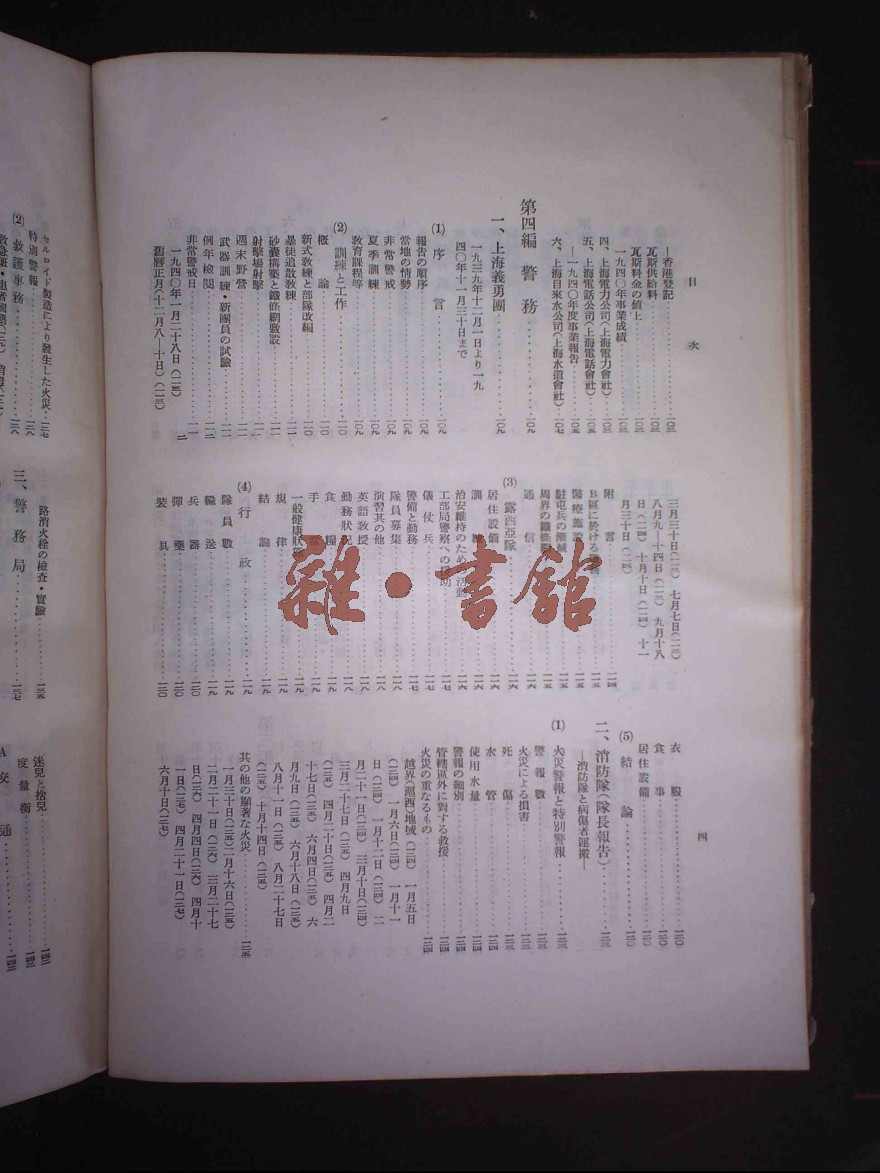 目次
四
―香港登記‥‥一〇三
瓦斯供給料‥‥一〇三
瓦斯料金の値上‥‥一〇三
一九四〇年事業成績‥‥一〇三
四、上海電力公司(上海電力會社)‥‥一〇三
五、上海電話公司(上海電話會社)‥‥一〇五
―一九四〇年度事業報告‥‥一〇五
六、上海自來水公司(上海水道會社)‥‥一〇七
第四編 警務‥‥一〇九
一、上海義勇團‥‥一〇九
一九三九年十二月一日より一九
四〇年十一月三十日まで
(1) 序言‥‥一〇九
報告の順序‥‥一〇九
當地の情勢‥‥一〇九
非常警戒‥‥一〇九
夏季訓練‥‥一〇九
敎育課程等‥‥一〇九
(2) 訓練と工作‥‥一一〇
槪論‥‥一一〇
新式敎練と部隊改編‥‥一一〇
暴徒追散敎練‥‥一一一
砂囊構築と鐵條網敷設‥‥一一一
射擊場射擊‥‥一一一
週末野營‥‥一一一
武器訓練・新團員の試驗‥‥一一一
例年檢閱‥‥一一二
非常警戒日‥‥一一二
一九四〇年一月二十八日(一一三)
舊曆正月(十二月八―十日)(一一三)
三月三十日(一一三) 七月七日(一一三)
八月九―十四日(一一三) 九月十八
日(一一四) 十月十日(一一四) 十一
月三十日(一一四)
附言‥‥一一四
B區に於ける
醫療施設‥‥一一五
駐屯兵の漸減‥‥一一五
周界の鐵條
通信‥‥一一六
(3) 露西亞隊‥‥一一六
居住設備‥‥一一六
訓練‥‥一一六
治安維持のため‥‥一一六
工部局警察への援助‥‥一一七
儀仗兵‥‥一一七
警備と勤務‥‥一一七
隊員募集‥‥一一八
演習其の他‥‥一一八
英語敎授‥‥一一八
勤務狀況‥‥一一八
食糧‥‥一一九
手
一般健康狀‥‥一一九
規律‥‥一一九
結論‥‥一一九
(4) 行政‥‥一一九
隊員數‥‥一一九
輸送‥‥一一九
兵器‥‥一二〇
彈藥‥‥一二〇
裝具‥‥一二〇
衣服‥‥一二〇
食事‥‥一二〇
居住設備‥‥一二〇
(5) 結論‥‥一二〇
二、消防隊(隊長報告)‥‥一二三
―消防隊と病傷者運搬―
(1) 火災警報と特別警報‥‥一二三
警報數‥‥一二三
火災による損害‥‥一二三
死傷‥‥一二三
水管‥‥一二四
使用水量‥‥一二四
警報の細別‥‥一二四
管轄區外に對する救援‥‥一二四
火災の重なるもの‥‥一二四
越界(滬西)地域(一二四) 一月五日
(一二四) 一月六日(一二四) 一月十一
日(一二四) 一月十二日(一二四) 二
月二十一日(一二四) 三月十日(一二四)
三月二十七日(一二五) 四月九日
(一二五) 四月二十日(一二五) 四月二
十七日(一二五) 六月四日(一二五) 六
月九日(一二五) 六月十八日(一二五)
八月十一日(一二五) 八月二十七日
(一二五) 十月十四日(一二五)
其の他の顯著な火災‥‥一二五
一月三十日(一二五) 二月十六日(一二五)
二月二十一日(一二六) 三月二十七
日(一二六) 四月四日(一二六) 四月十
一日(一二七) 四月二十一日(一二七)
六月十日(一二七)
セルロイド製造により發生した火災‥‥一二七
特別警報‥‥一二八
(2) 救護事務‥‥一二八
路消火栓の檢査・實驗‥‥一三五
三、警務局‥‥一三七
迷兒と捨兒‥‥一四一
度量衡‥‥一四一
A 交通‥‥一四二
雜・書館